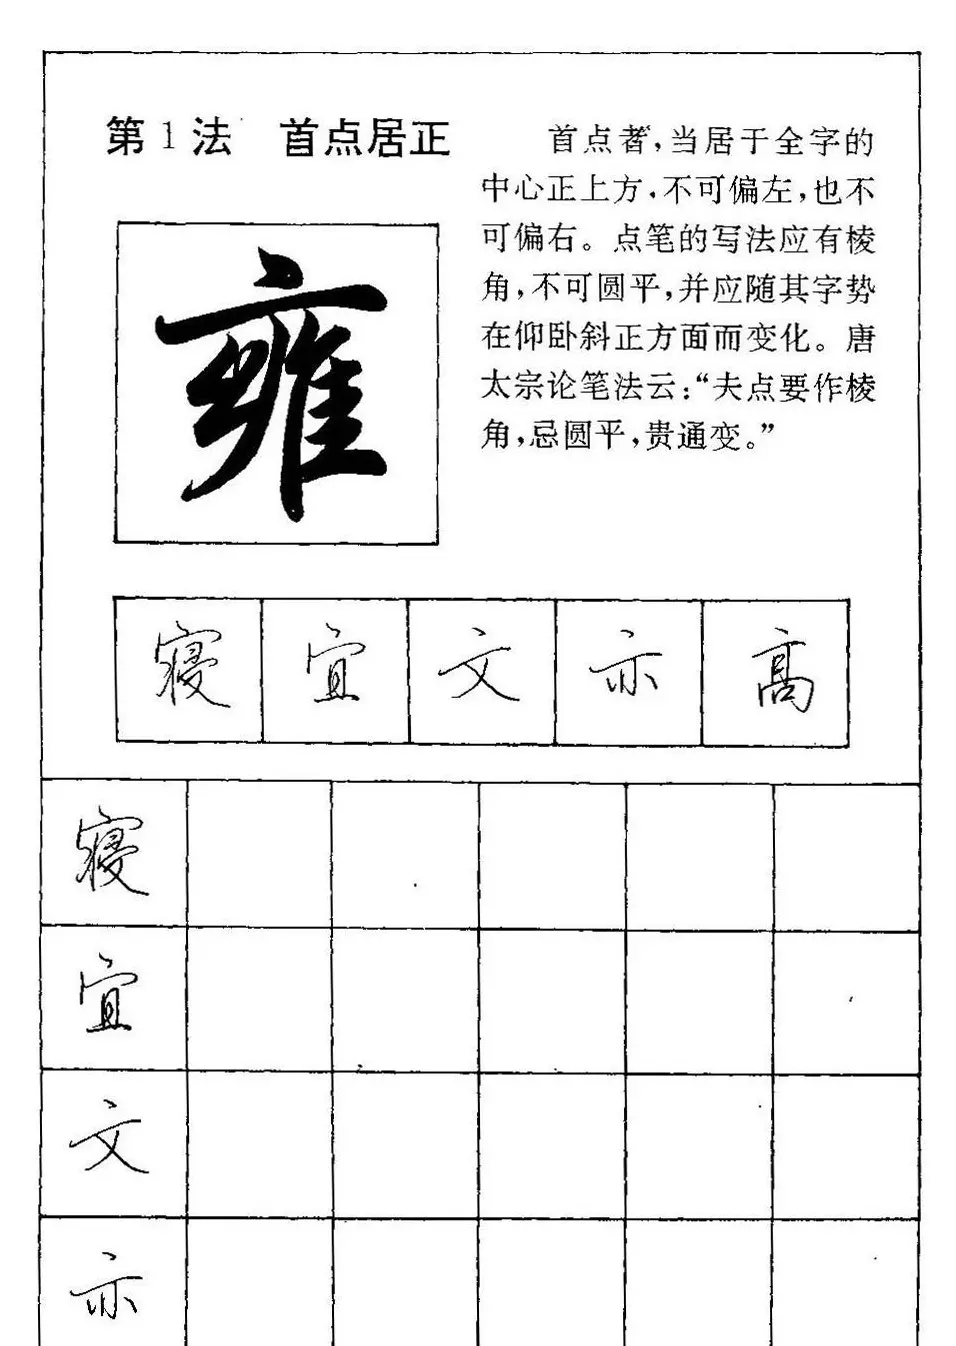 第1法 首点居正
首点者,当居于全字的
中心正上方,不可偏左,也不
可偏右。点笔的写法应有棱
角,不可圆平,并应随其字势
在仰卧斜正方面而变化。唐
太宗论笔法云:“夫点要作棱
角,忌圆平,贵通变。”
雍
寝 宜 文 亦 高
寝
宜
文
亦